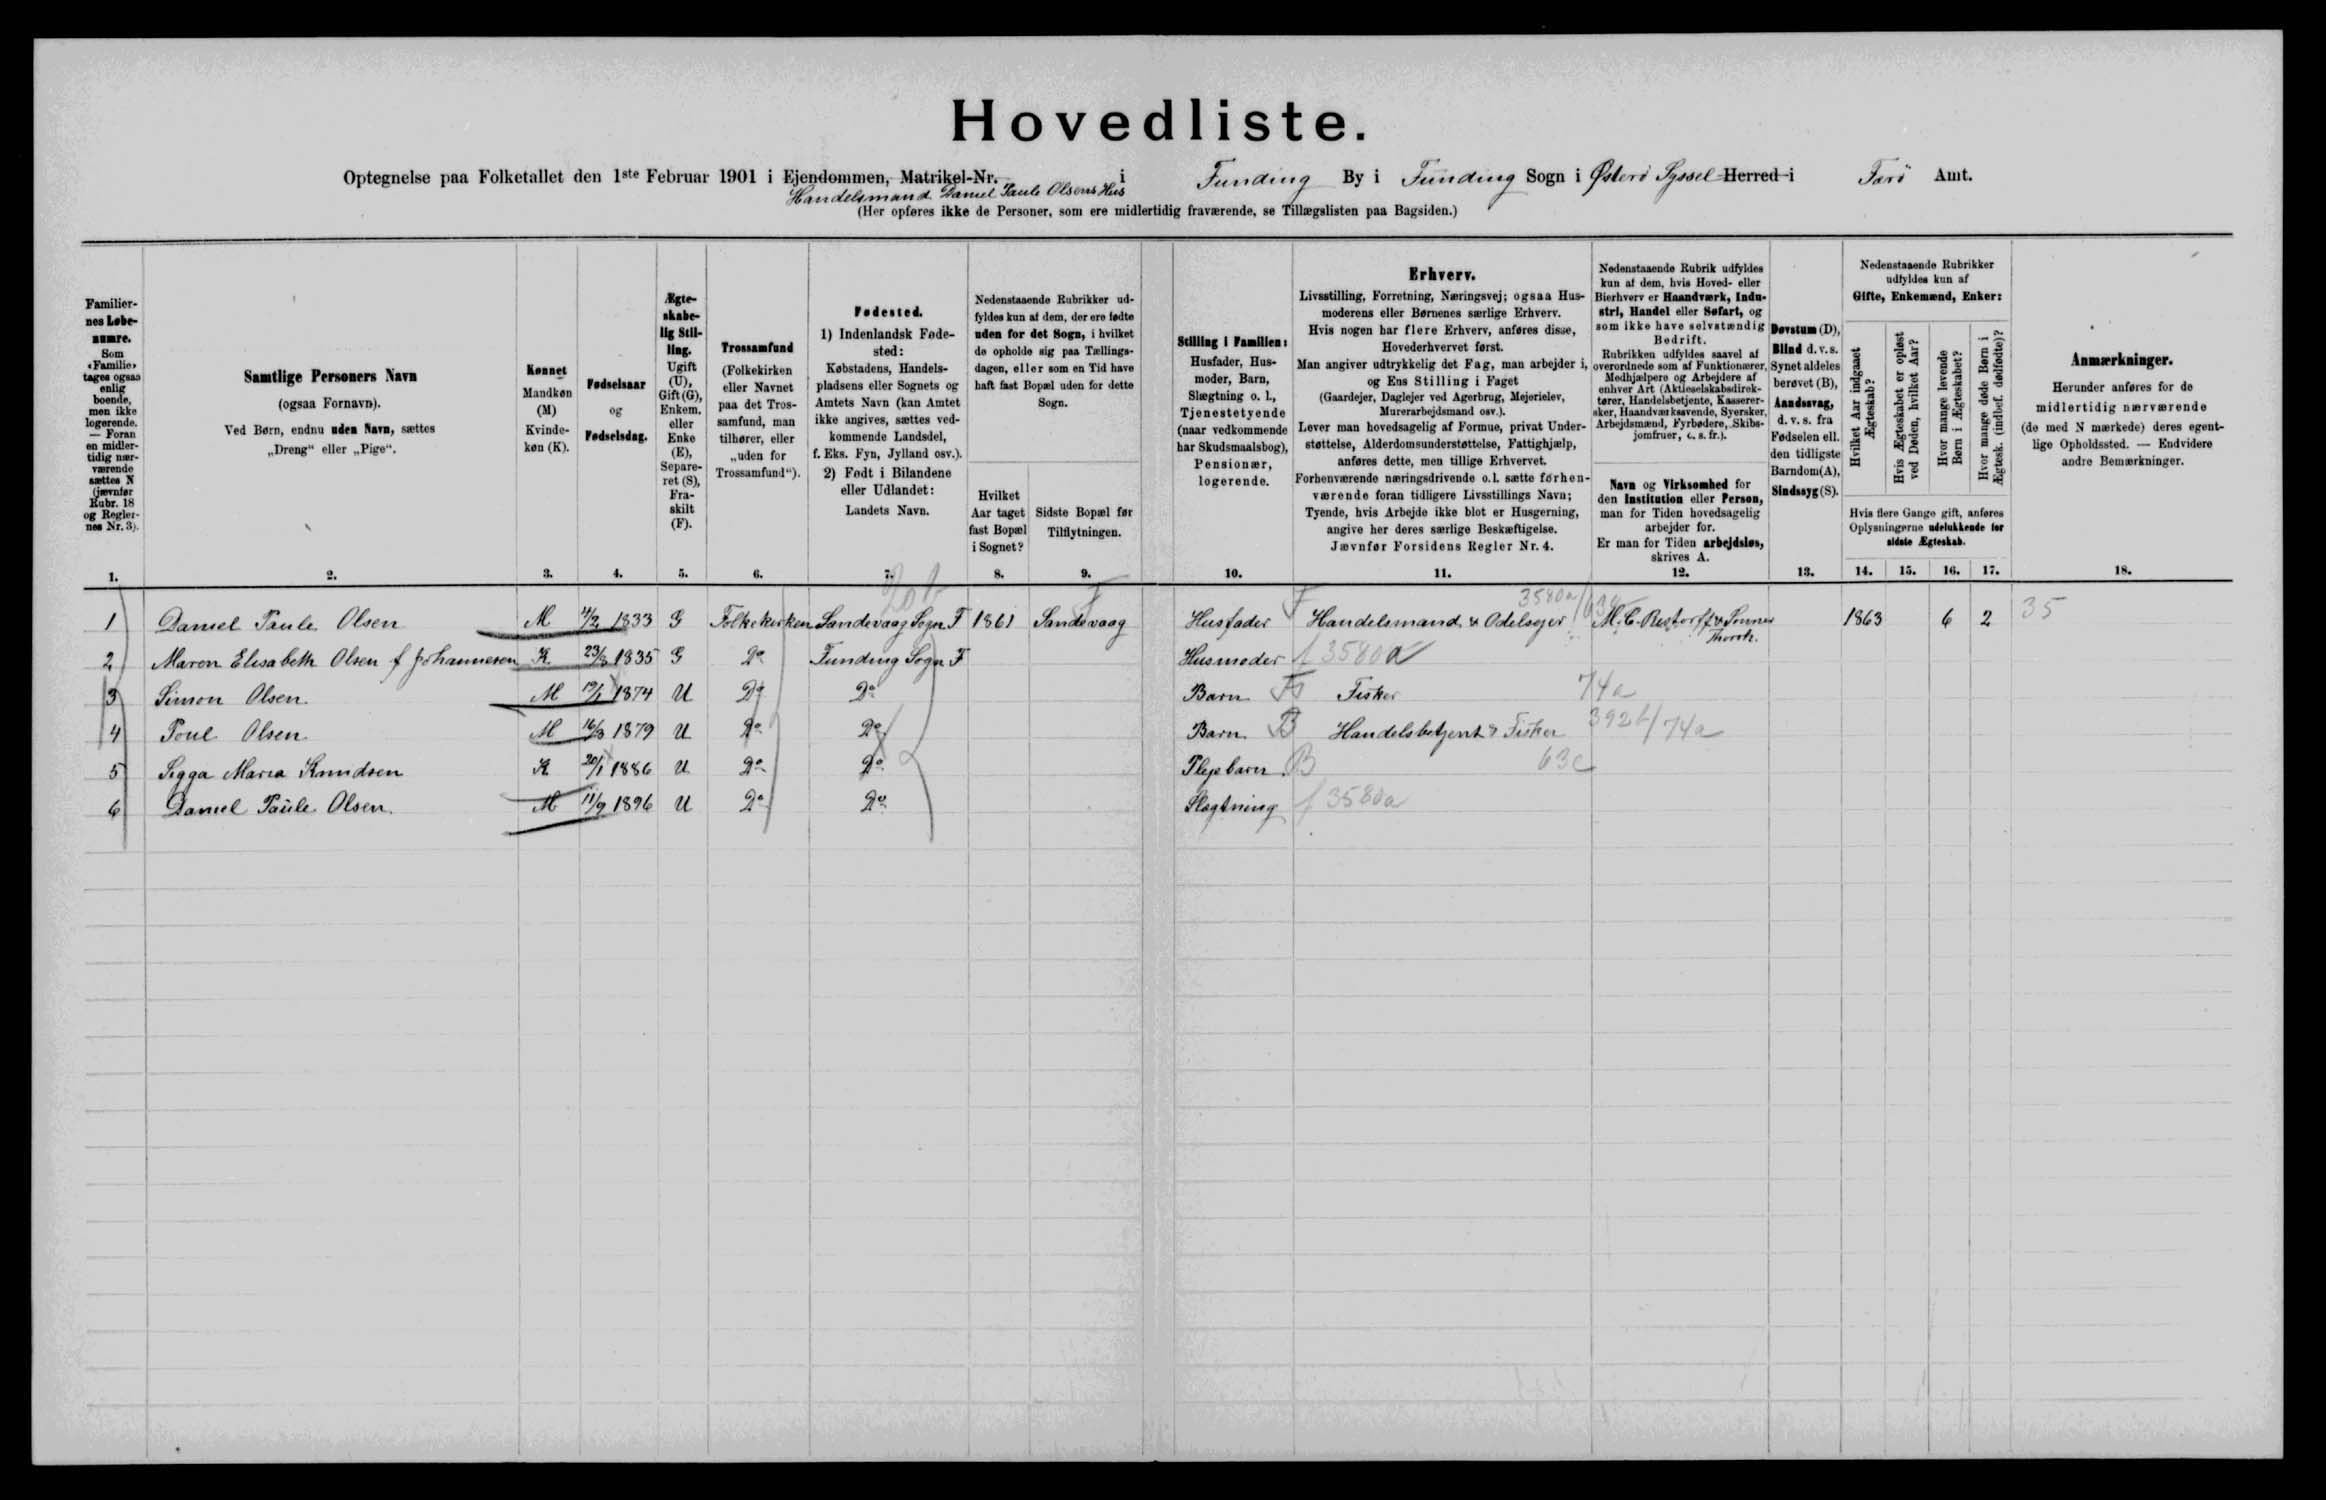 Hovedliste.
Optegnelse paa Folketallet den 1ste Februar 1901 i Ejendommen, Matrikel-Nr. i Funding By i Funding Sogn i Østerö Syssel Herred i Færö Amt.
Handelsmand Daniel Paule Olsens Hus
(Her opføres ikke de Personer, som ere midlertidig fraværende, se Tillægslisten paa Bagsiden.)
Familier-
nes Løbe-
numre.
Som
«Familie»
tages ogsaa
enlig
boende,
men ikke
logerende.
— Foran
en midler-
tidig nær-
værende
sættes N
(jævnfør
Rubr. 18
og Regler-
nes Nr. 3).
1.
Samtlige Personers Navn
(ogsaa Fornavn).
Ved Børn, endnu uden Navn, sættes
„Dreng“ eller „Pige“.
2.
Kønnet
Mandkøn
(M)
Kvinde-
køn (K).
3.
Fødselsaar
og
Fødselsdag.
4.
Ægte-
skabe-
lig Stil-
ling.
Ugift
(U),
Gift (G),
Enkem.
eller
Enke
(E),
Separe-
ret (S),
Fra-
skilt
(F).
5.
Trossamfund
(Folkekirken
eller Navnet
paa det Tros-
samfund, man
tilhører, eller
„uden for
Trossamfund“).
6.
Fødested.
1) Indenlandsk Føde-
sted:
Købstadens, Handels-
pladsens eller Sognets og
Amtets Navn (kan Amtet
ikke angives, sættes ved-
kommende Landsdel,
f. Eks. Fyn, Jylland osv.).
2) Født i Bilandene
eller Udlandet:
Landets Navn.
7.
Nedenstaaende Rubrikker ud-
fyldes kun af dem, der ere fødte
uden for det Sogn, i hvilket
de opholde sig paa Tællings-
dagen, eller som en Tid have
haft fast Bopæl uden for dette
Sogn.
Hvilket
Aar taget
fast Bopæl
i Sognet?
8.
Sidste Bopæl før
Tilflytningen.
9.
Stilling i Familien:
Husfader, Hus-
moder, Barn,
Slægtning o. l.,
Tjenestetyende
(naar vedkommende
har Skudsmaalsbog),
Pensionær,
logerende.
10.
Erhverv.
Livsstilling, Forretning, Næringsvej; ogsaa Hus-
moderens eller Børnenes særlige Erhverv.
Hvis nogen har flere Erhverv, anføres disse,
Hovederhvervet først.
Man angiver udtrykkelig det Fag, man arbejder i,
og Ens Stilling i Faget
(Gaardejer, Daglejer ved Agerbrug, Mejerielev,
Murerarbejdsmand osv.).
Lever man hovedsagelig af Formue, privat Under-
støttelse, Alderdomsunderstøttelse, Fattighjælp,
anføres dette, men tillige Erhvervet.
Forhenværende næringsdrivende o. l. sætte forhen-
værende foran tidligere Livsstillings Navn;
Tyende, hvis Arbejde ikke blot er Husgerning,
angive her deres særlige Beskæftigelse.
Jævnfør Forsidens Regler Nr. 4.
11.
Nedenstaaende Rubrik udfyldes
kun af dem, hvis Hoved- eller
Bierhverv er Haandværk, Indu-
stri, Handel eller Søfart, og
som ikke have selvstændig
Bedrift.
Rubrikken udfyldes saavel af
overordnede som af Funktionærer,
Medhjælpere og Arbejdere af
enhver Art (Aktieselskabsdirek-
tører, Handelsbetjente, Kasserer-
sker, Haandværkssvende, Syersker,
Arbejdsmænd, Fyrbødere, Skibs-
jomfruer, o. s. fr.).
Navn og Virksomhed for
den Institution eller Person,
man for Tiden hovedsagelig
arbejder for.
Er man for Tiden arbejdsløs,
skrives A.
12.
Døvstum (D),
Blind d. v. s.
Synet aldeles
berøvet (B),
Aandssvag,
d. v. s. fra
Fødselen ell.
den tidligste
Barndom (A),
Sindssyg (S).
13.
Nedenstaaende Rubrikker
udfyldes kun af
Gifte, Enkemænd, Enker:
Hvilket Aar indgaaet
Ægteskab?
Hvis Ægteskabet er opløst
ved Døden, hvilket Aar?
Hvor mange levende
Børn i Ægteskabet?
Hvor mange døde Børn i
Ægtesk. (indbef. dødfødte)?
Hvis flere Gange gift, anføres
Oplysningerne udelukkende for
sidste Ægteskab.
14. 15. 16. 17.
Anmærkninger.
Herunder anføres for de
midlertidig nærværende
(de med N mærkede) deres egent-
lige Opholdssted. — Endvidere
andre Bemærkninger.
18.
1 Daniel Paule Olsen M 4/2 1833 G Folkekirken Sandevaag Sogn F 1861 Sandevaag Husfader F Handelsmand & Odelsejer 3580a M. C. Restorff & Sönner Thorsh. 1863 6 2 35
2 Maren Elisabeth Olsen f Johannesen K 23/3 1835 G Do Funding Sogn F Husmoder f 3580a
3 Simon Olsen M 19/1 1874 U Do Do Barn Fisker 74a
4 Poul Olsen M 16/3 1879 U Do Do Barn B Handelsbetjent & Fisker 392b/74a
5 Sigga Maria Knudsen K 20/1 1886 U Do Do Plejebarn B 63c
6 Daniel Paule Olsen M 11/9 1896 U Do Do Slægtning f 3580a